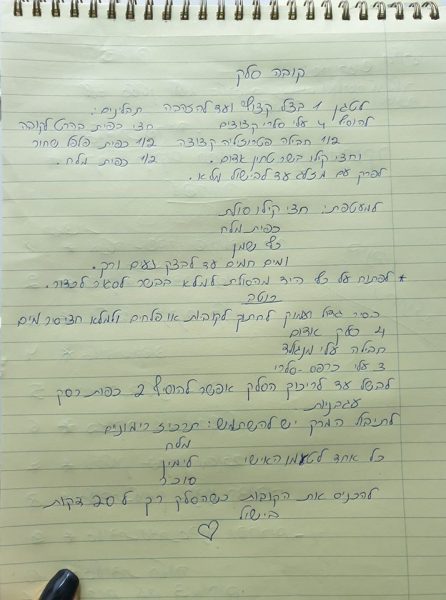 קובה סלק
לטגן 1 בצל קצוץ ועד להזהבה תבלינים:
להוסיף 4 עלי סלרי קצוצים חצי כפית בהרט לקובה
1/2 חבילה פטרוזליה קצוצה 1/2 כפית פלפל שחור
וחצי קילו בשר טחון אדום. 1/2 כפית מלח.
לפרק עם מזלג עד לבישול מלא.
למעטפת: חצי קילו סולת
כפית מלח
כף שמן
ומים חמים עד לבצק נעים ורק.
* לפתוח על כף היד מהסולת למלא בבשר לסגור לכדור.
רוטב
בסיר גדול ועמוק לחתוך לקוביות או פלחים ולמלא חצי סיר מים
4 סלק אדום
חבילה עלי מנגולד
3 עלי כרפס-סלרי
לבשל עד לריכוך הסלק אפשר להוסיף 2 כפות רסק
עגבניות.
לתיבול המרק יש להשתמש: תרכיז רימונים
מלח
כל אחד לטעמו האישי לימון
סוכר
להכניס את הקובות כשהסלק רק ל 20 דקות
בישול